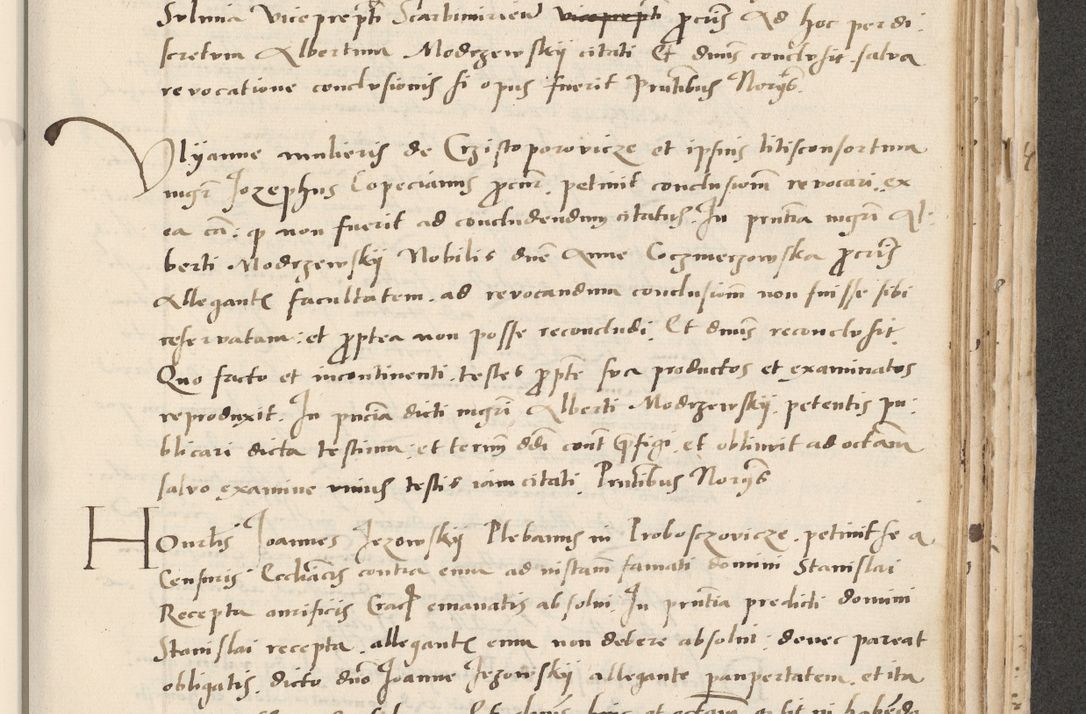 Sylvia Viceprepti Scarbimirien̄ viceprepti ꝓcurs̄ ad hoc per di:
scretum Albertum Modrzewskÿ citati Et dnus̄ conclusit. salva
revocatione conclusionis si opus fuerit Pntibus Norys̄.
Vlyanne mulieris de Crzistoporovicze et ipsius litisconsortum
mgr̄ Jozephus Copecianus ꝓcur̄. petiuit conclusionē revocari ex
ea cā: ꝙ non fuerit ad concludendum citatus. In pntia mgrī Al:
berti Modrzewskÿ Nobilis dnē Anne Coczmerzowska ꝓcurs̄
Allegantꝭ facultatem. ad revocandum conclusionē non fuisse sibi
reservatam: et ꝓptea non posse reconcludi. Et dnus̄ reconclusit.
Quo facto et incontinenti. testes ꝓ pte sua productos et examinatos
reproduxit. In pncia dicti mgrī Alberti Modrzewskÿ. petentis pu:
blicari dicta testium. et termī ddi cont̄ p̄figi. et obtinuit ad octavā
salvo examine unius testis iam citati. Pntibus Norys̄
Honrlis Joannes Jezowskÿ Plebanus in Proboszovicze. petiuit se a
Censuris Eccliacis contra eum ad instanā famati domini Stanislai
Recepta aurificis Crac̄ emanatis absolui. In pntia predicti domini
Stanislai recepta. allegantꝭ eum non debere absolui. donec pareat
obligatis. dicto. dn̄o Joanne Jezowskÿ allegante paupertatem. et ita